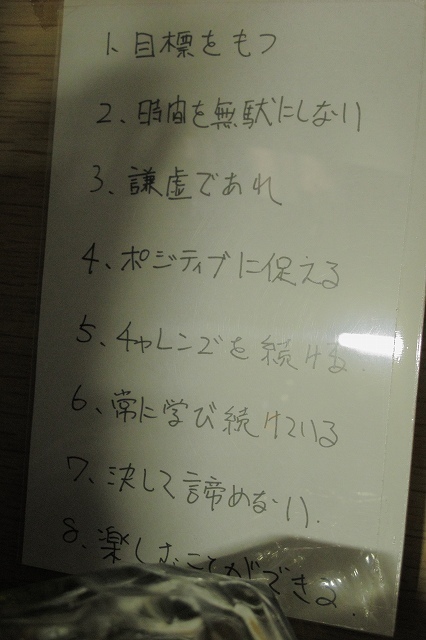 1、目標をもつ
2、時間を無駄にしない
3、謙虚であれ
4、ポジティブに促える
5、チャレンジを続ける.
6、常に学び続けている
7、決して諦めない.
8、楽しむことができる.